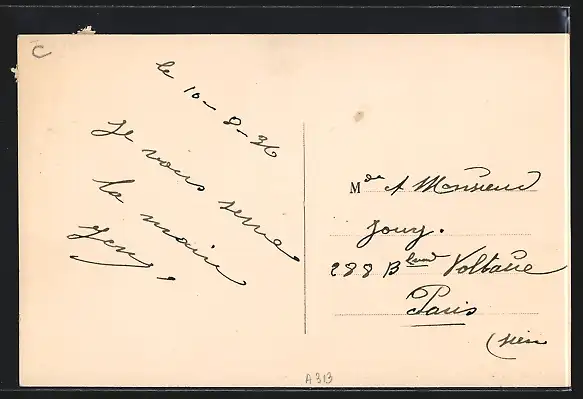 C
le 10-8-36
Je vous serre
la main
Mde & Monsieur
Jouy.
288 Blevard Voltaire
Paris
A 313